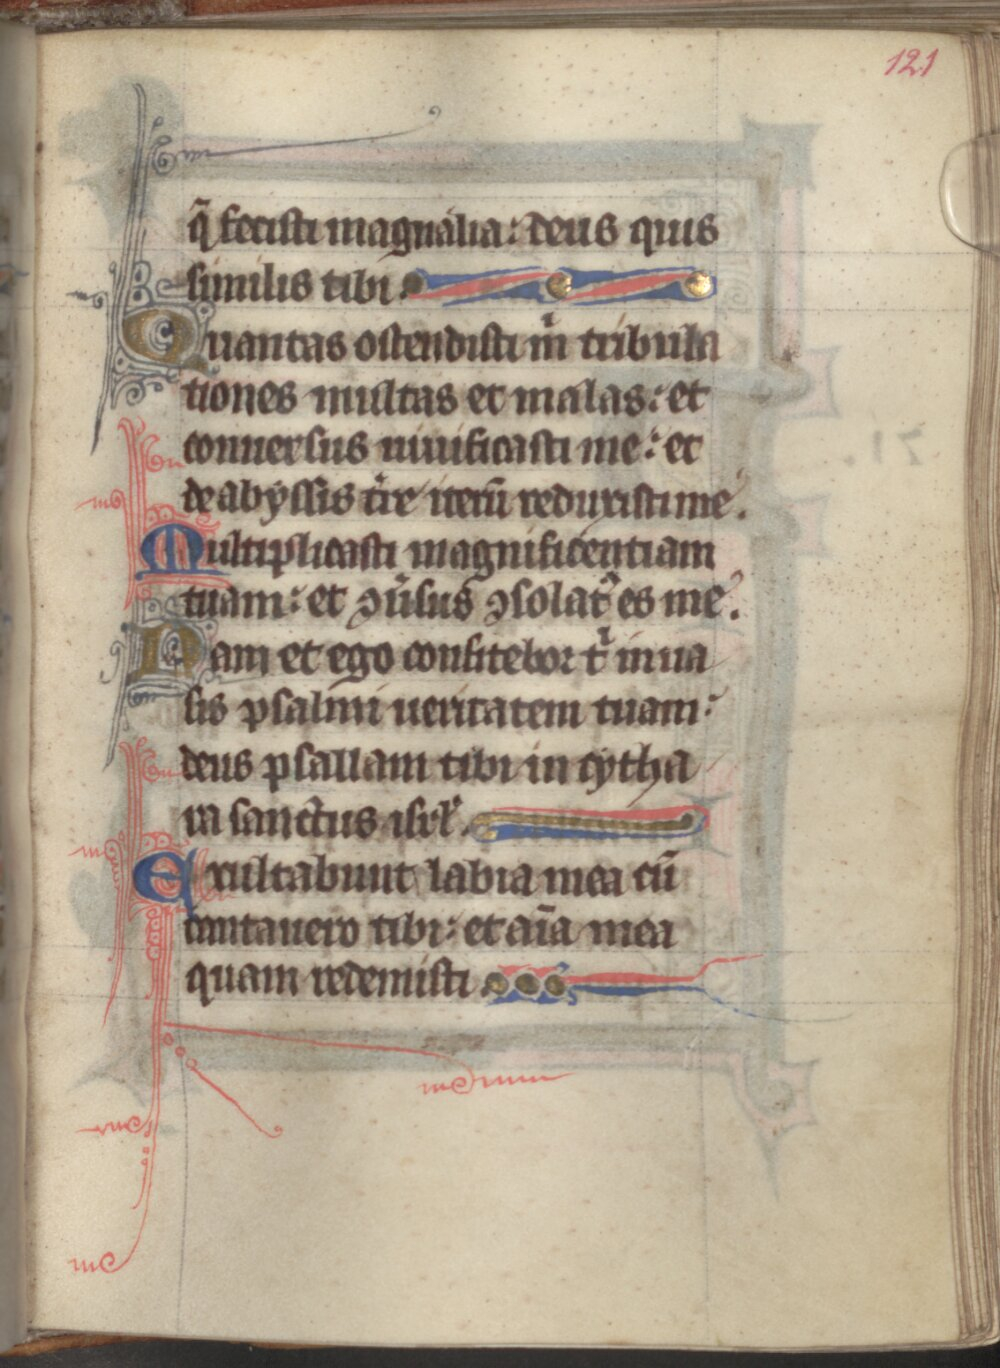 121
q̄ fecisti magnalia: deus quis
similis tibi.
Quantas ostendisti m̄ tribula
tiones multas et malas: et
conuersus uiuificasti me: et
de abyssis t̄re iterū reduxisti me.
Multiplicasti magnificentiam
tuam: et ꝯūsus ꝯsolat᷒ es me.
Nam et ego confitebor t̄ in ua
sis psalmi ueritatem tuam:
deus psallam tibi in cytha
ra sanctus isrl̄.
Exultabunt labia mea cū
cantauero tibi: et aīa mea
quam redemisti.